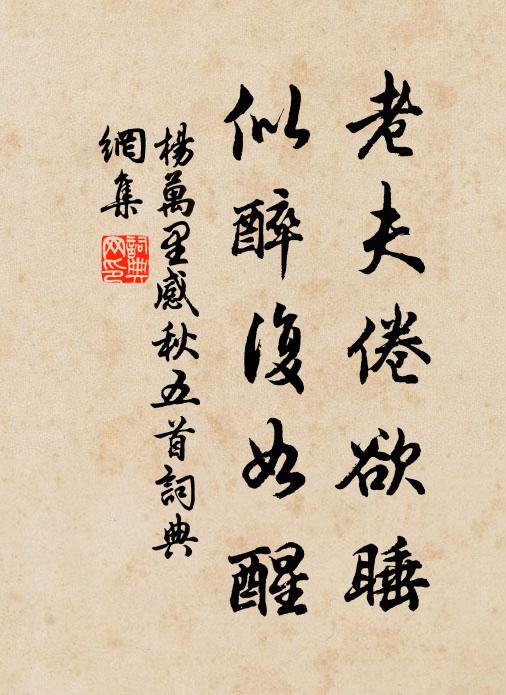 老夫倦欲睡
似醉復如醒
楊萬里感秋五首詞典
網集
詞典
网印